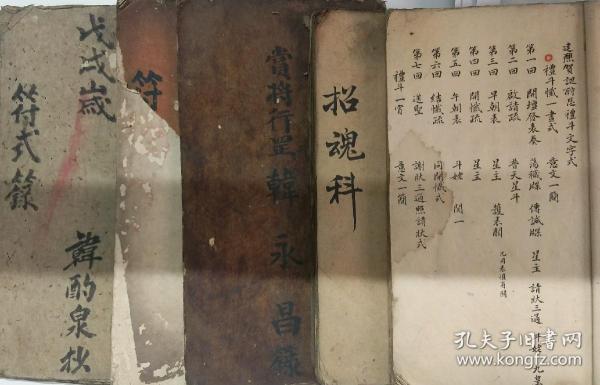 戊戌歲
符式籙
韓酌泉抄
符
賞將行罡
韓永昌
招魂科
建醮賀誕酧恩禮斗文字式
禮斗懺一書式 意文一簡
第一回 開壇發表奏 蕩穢牒 傳誠牒 星主 請狀三通
第二回 啟請疏 普天星斗
第三回 早朝表 星主 護表關
第四回 開懺疏 星主
第五回 午朝表 斗姥 関一
第六回 結懺疏 同開懺式
第七回 送聖 謝狀三通照請狀式
禮斗一宵 意文一簡
孔夫子旧书网
www.kongfz.com